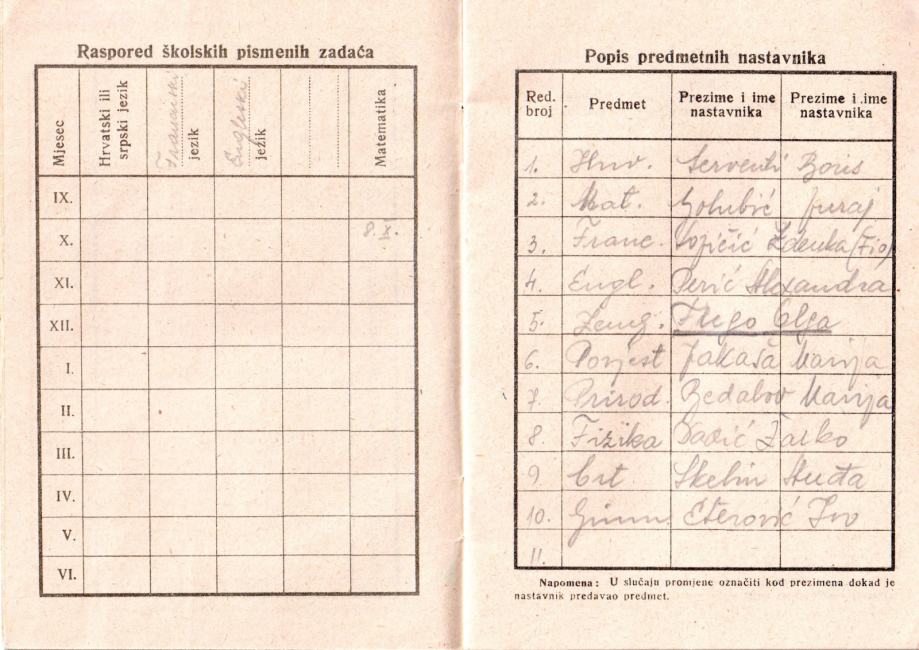 Raspored školskih pismenih zadaća
Mjesec
Hrvatski ili srpski jezik
Francuski jezik
Engleski jezik
Matematika
IX.
X. 8. X.
XI.
XII.
I.
II.
III.
IV.
V.
VI.
Popis predmetnih nastavnika
Red. broj Predmet Prezime i ime nastavnika Prezime i ime nastavnika
1. Hrv. Serventi Boris
2. Mat. Golubić Juraj
3. Franc. Zdenka
4. Engl. Perić Alexandra
5. Zemg. Frigo Olga
6. Povjest Jakaša Marija
7. Prirod. Bedalov Marija
8. Fizika Davić Žarko
9. Crt. Skelin
10. Gimn. Eterović Ivo
11.
Napomena: U slučaju promjene označiti kod prezimena dokad je
nastavnik predavao predmet.